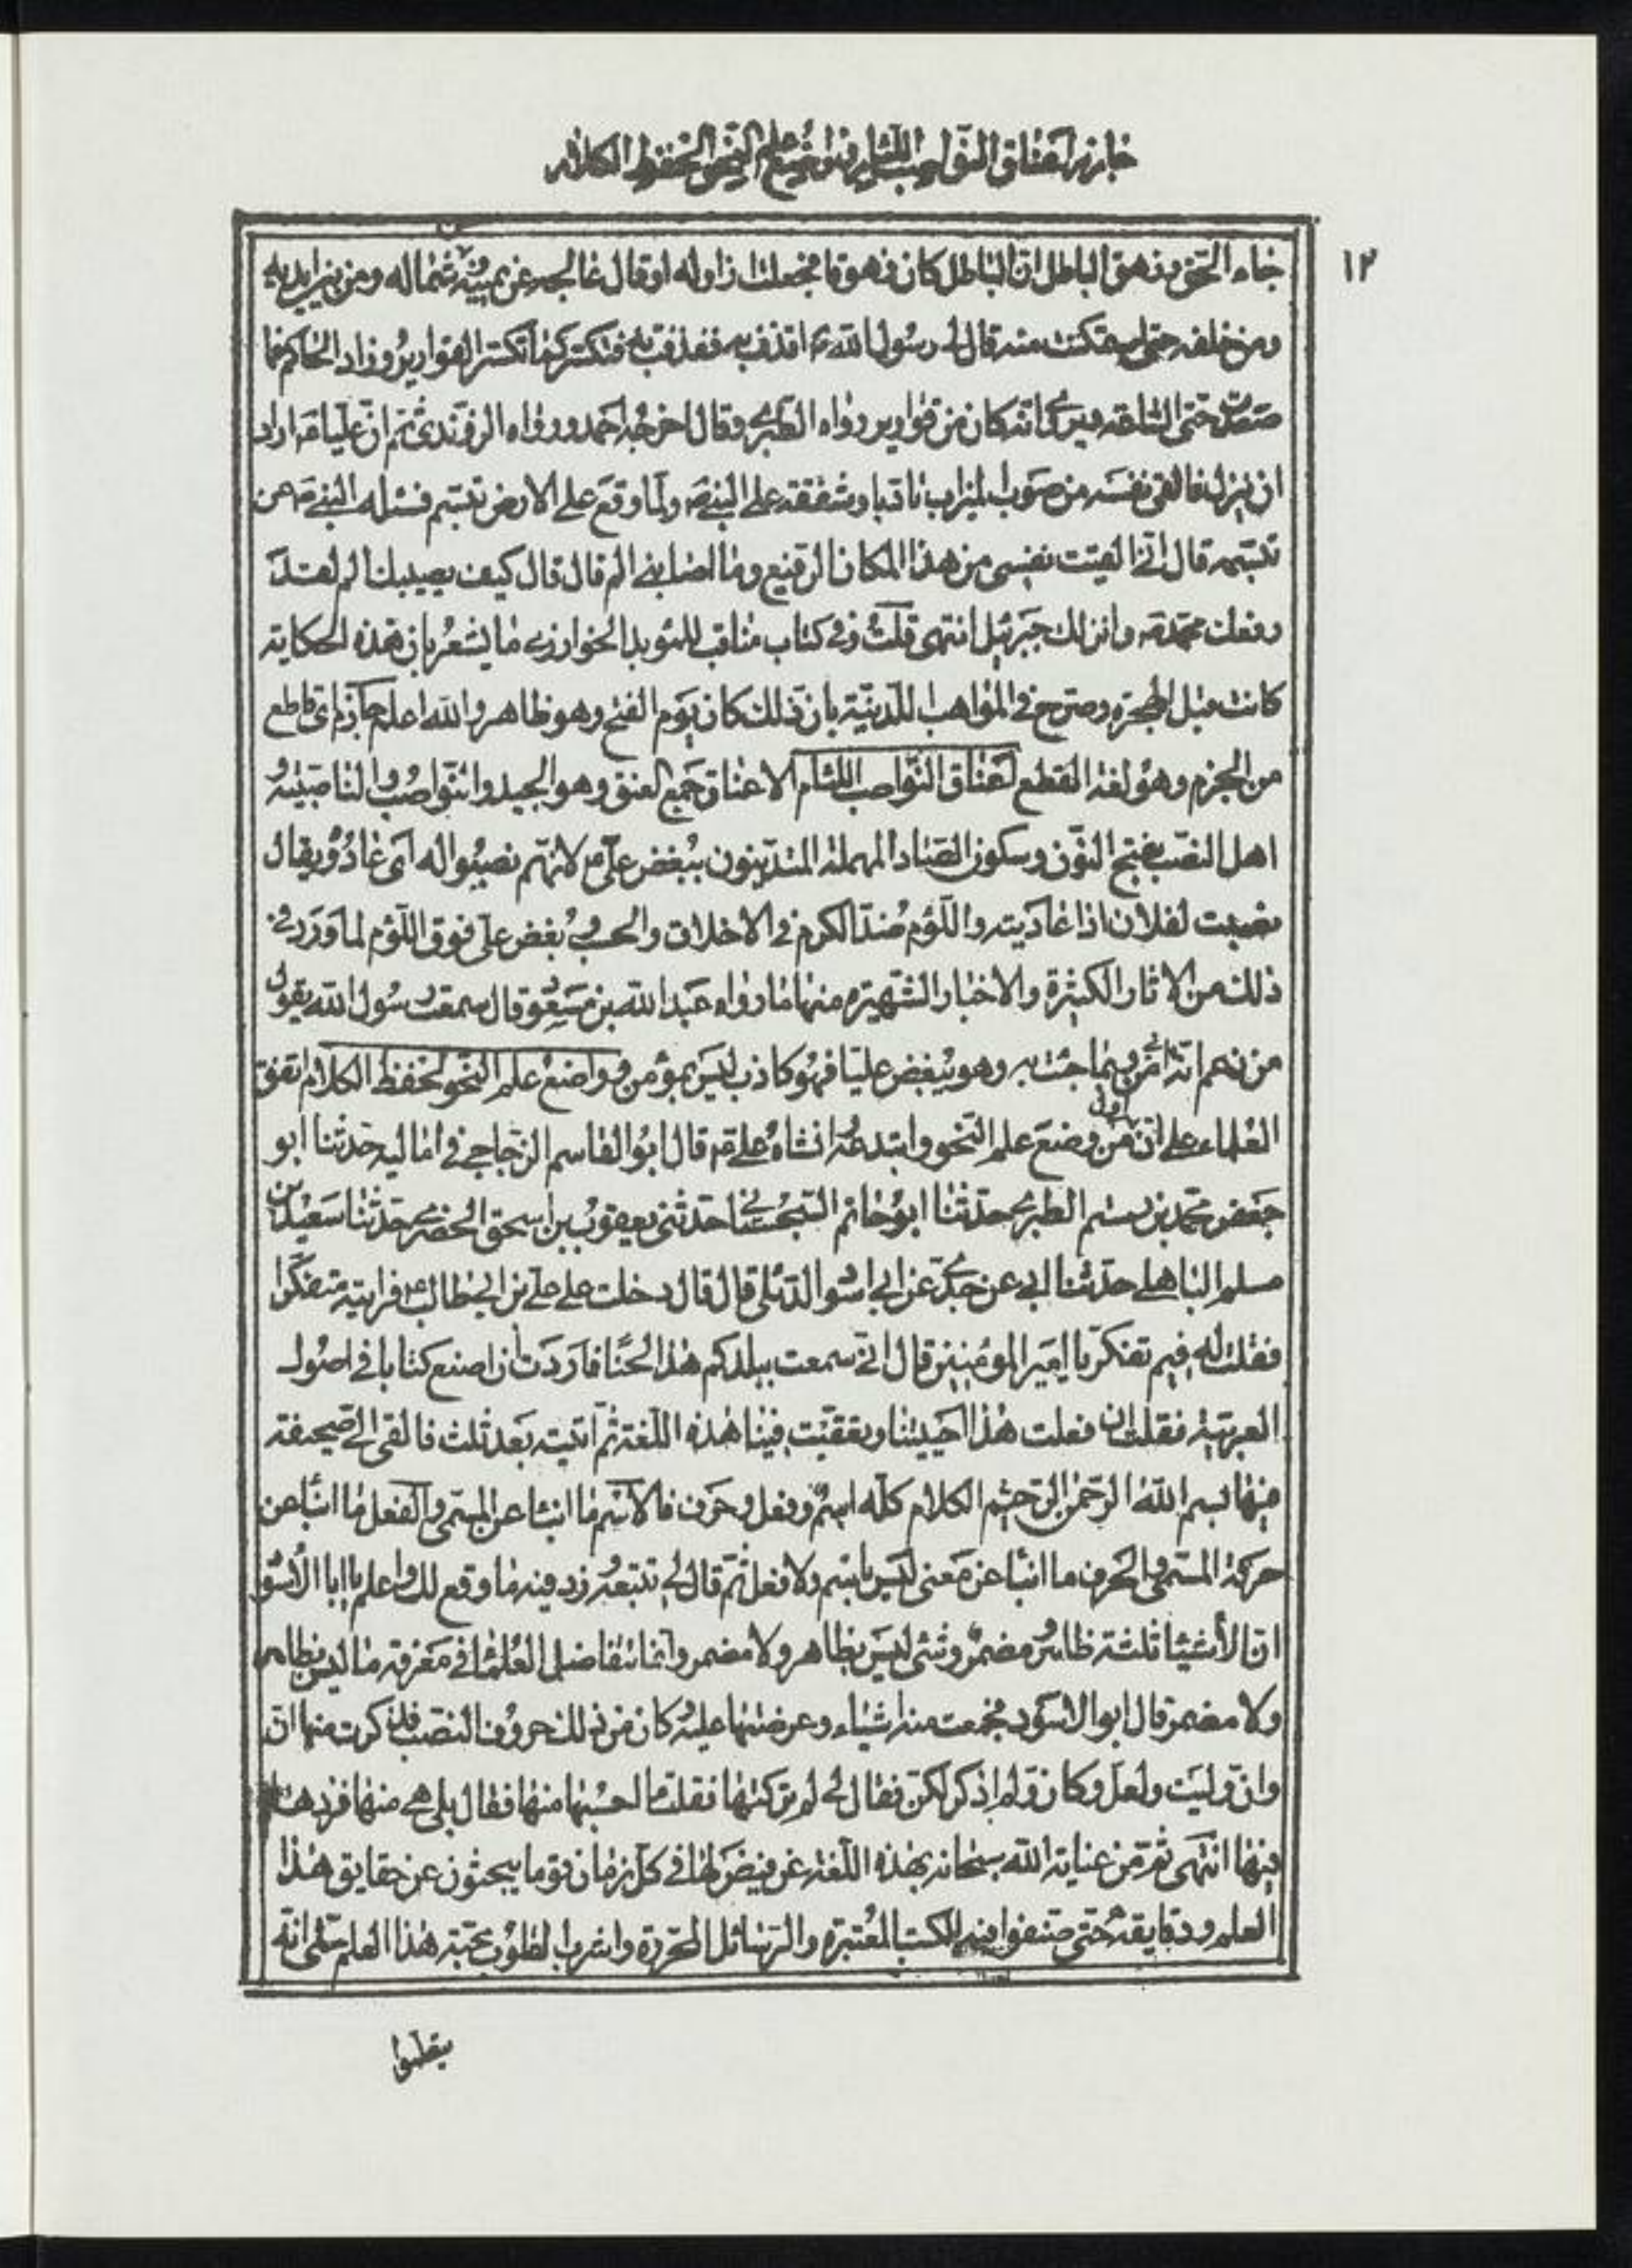 جازم اعناق النواصب اللئام واضع علم النحو لحفظ الكلام
١٢
جاء الحق وزهق الباطل ان الباطل كان زهوقا فجعلت ازاوله او قال اعالجه عن يمينه وشماله ومن بين يديه
ومن خلفه حتى استمكنت منه قال لى رسول الله ص اقذف به فقذفت به فتكسر كما تتكسر القوارير وزاد الحاكم فما
صعدت حتى الساعة ويروى انه كان من قوارير رواه الطبرى وقال اخرجه احمد ورواه الزرندى ثم ان عليا ع اراد
ان ينزل فالقى نفسه من صوب الميزاب تادبا وشفقة على النبى ص ولما وقع على الارض تبسم فسئله النبى ص عن
تبسمه قال انى القيت نفسى من هذا المكان الرفيع وما اصابنى الم قال قال كيف يصيبك الم لقد
رفعك محمد ص وانزلك جبرئيل انتهى قلت وفى كتاب مناقب للمؤيد الخوارزمى ما يشعر بان هذه الحكاية
كانت قبل الهجرة وصرح فى المواهب اللدنية بان ذلك كان يوم الفتح وهو ظاهر والله اعلم جازم اى قاطع
من الجزم وهو لغة القطع اعناق النواصب اللئام الاعناق جمع العنق وهو الجيد والنواصب والناصبية و
اهل النصب بفتح النون وسكون الصاد المهملة المتدينون ببغض على ع لانهم نصبوا له اى عادوه يقال
نصبت لفلان اذا عاديته واللؤم ضد الكرم فى الاخلاق والحسب وبغض على فوق اللؤم لما ورد فى
ذلك من الاثار الكثيرة والاخبار الشهيرة منها ما رواه عبد الله بن مسعود قال سمعت رسول الله يقول
من زعم انه امن بى وبما جئت به وهو يبغض عليا فهو كاذب ليس بمؤمن وواضع علم النحو لحفظ الكلام اتفق
العلماء على ان اول من وضع علم النحو وابتدعه وانشاه على ع قال ابو القاسم الزجاجى فى اماليه حدثنا ابو
جعفر محمد بن رستم الطبرى حدثنا ابو حاتم السجستانى حدثنى يعقوب بن اسحق الحضرمى حدثنا سعيد بن
مسلم الباهلى حدثنا ابى عن جدى عن ابى اسود الدئلى قال قال دخلت على على بن ابى طالب ع فرايته متفكرا
فقلت له فيم تفكر يا امير المؤمنين قال انى سمعت ببلدكم هذا لحنا فاردت ان اصنع كتابا فى اصول
العربية فقلت ان فعلت هذا احييتنا وبقيت فينا هذه اللغة ثم اتيته بعد ثلث فالقى الى صحيفة
فيها بسم الله الرحمن الرحيم الكلام كله اسم وفعل وحرف فالاسم ما انبا عن المسمى والفعل ما انبا عن
حركة المسمى والحرف ما انبا عن معنى ليس باسم ولا فعل ثم قال لى تتبعه وزد فيه ما وقع لك واعلم يا ابا الاسود
ان الاشياء ثلثة ظاهر ومضمر وشئ ليس بظاهر ولا مضمر وانما تتفاضل العلماء فى معرفة ما ليس بظاهر
ولا مضمر قال ابو الاسود فجمعت منه اشياء وعرضتها عليه وكان من ذلك حروف النصب فذكرت منها ان
وان وليت ولعل وكان ولم اذكر لكن فقال لى لم تركتها فقلت ما احسبها منها فقال بلى هى منها فزدها
فيها انتهى ثم من عناية الله سبحانه بهذه اللغة ان قيض لها فى كل زمان قوما يبحثون عن حقايق هذا
العلم ودقايقه حتى صنفوا فيه الكتب المعتبرة والرسائل المحررة واشربوا قلوب محبة هذا العلم حتى انه